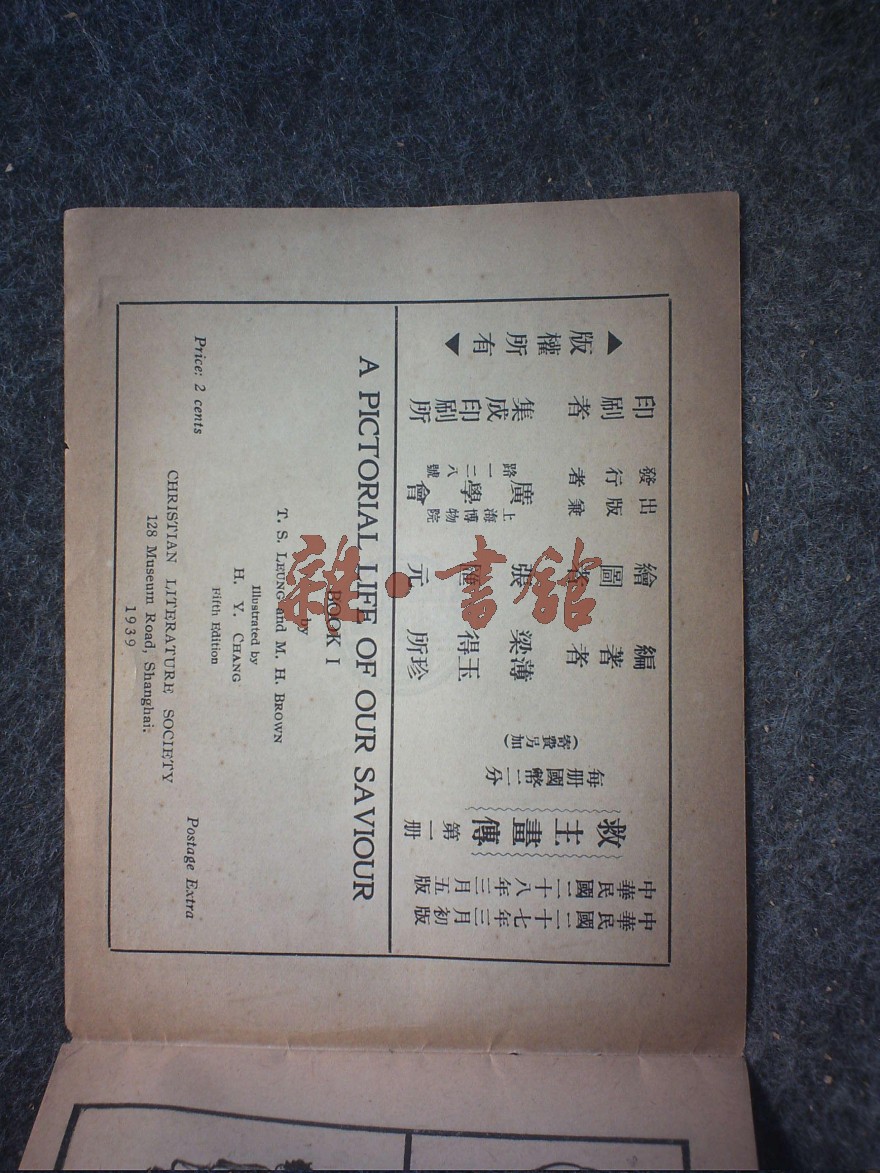 中華民國二十七年三月初版
中華民國二十八年三月五版
救主畫傳 第一册
每册國幣二分
(寄費另加)
編著者
薄玉珍
梁得所
繪圖者
張匯元
出版兼
發行者
上海博物院
廣學會
路一二八號
印刷者
集成印刷所
▲版權所有▼
A PICTORIAL LIFE OF OUR SAVIOUR
BOOK I
by
T. S. LEUNG and M. H. BROWN
Illustrated by
H. Y. CHANG
Fifth Edition
Price: 2 cents
Postage Extra
CHRISTIAN LITERATURE SOCIETY
128 Museum Road, Shanghai.
1939
雜·書館